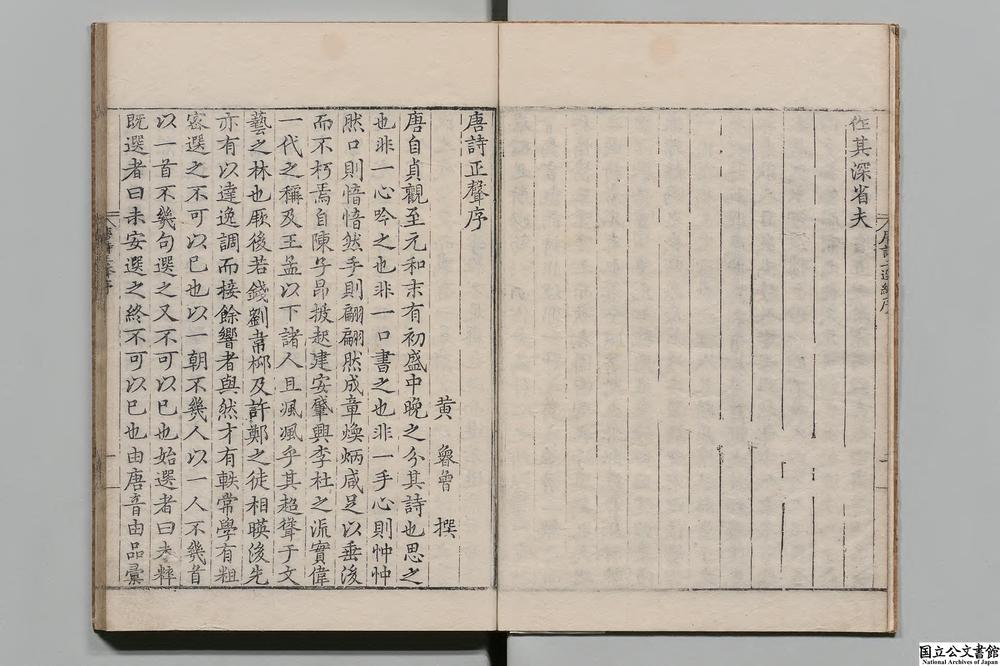 作其深省夫
唐詩正聲序
黃 魯曾 撰
唐自貞觀至元和末有初盛中晚之分其詩也思之
也非一心吟之也非一口書之也非一手心則忡忡
然口則愔愔然手則翩翩然成章煥炳咸足以垂後
而不朽焉自陳子昂披起建安肇興李杜之派實偉
一代之稱及王孟以下諸人且渢渢乎其超聳于文
藝之林也厥後若錢劉韋柳及許鄭之徒相暎後先
亦有以達逸調而接餘響者與然才有軼常學有粗
密選之不可以已也以一朝不幾人以一人不幾首
以一首不幾句選之又不可以已也始選者曰未粹
既選者曰未安選之終不可以已也由唐音由品彙
国立公文書館
National Archives of Japan